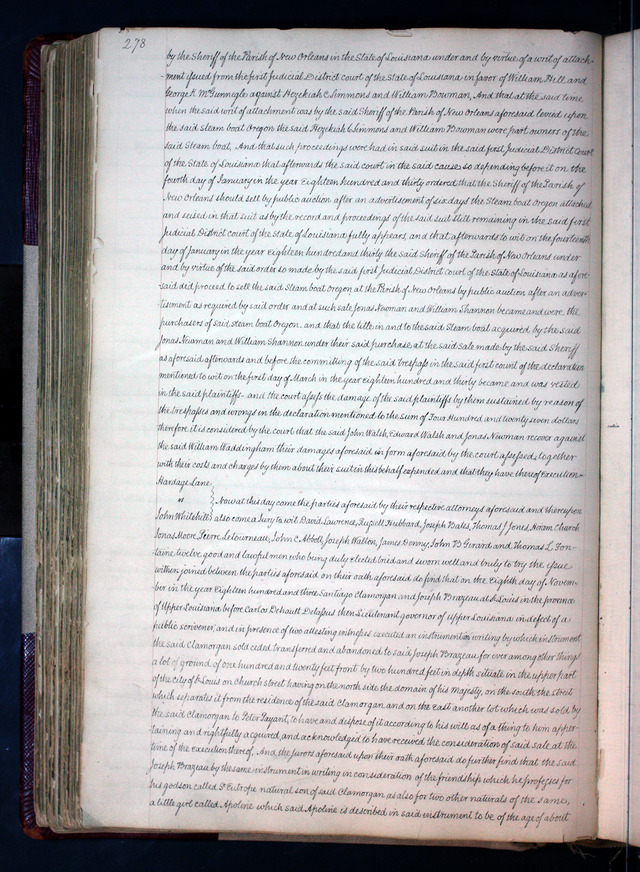 278
by the Sheriff of the Parish of New Orleans in the State of Louisiana under and by virtue of a writ of attach-
-ment issued from the first Judicial District court of the State of Louisiana in favor of William Hill and
George K. McGunnegle against Hezekiah C Simmons and William Bowman, And that at the said time
when the said writ of attachment was by the said Sheriff of the Parish of New Orleans aforesaid levied upon
the said steam boat Oregon the said Hezekiah C Simmons and William Bowman were part owners of the
said Steam boat, And that such proceedings were had in said suit in the said first Judicial District Court
of the State of Louisiana that afterwards the said court in the said cause so depending before it on the
fourth day of January in the year Eighteen hundred and thirty ordered that the Sheriff of the Parish of
New Orleans should sell by public auction after an advertisement of six days the Steam boat Oregon attached
and seized in that suit as by the record and proceedings of the said suit still remaining in the said first
Judicial District court of the State of Louisiana fully appears, and that afterwards to wit on the fourteenth
day of January in the year eighteen hundred and thirty the said Sheriff of the Parish of New Orleans under
and by virtue of the said order so made by the said first Judicial District court of the State of Louisiana as afore-
said did proceed to sell the said Steam boat Oregon at the Parish of New Orleans by public auction after an adver-
-tisement as required by said order and at such sale Jonas Newman and William Shannon became and were the
purchasers of said steam boat Oregon. and that the title in and to the said Steam boat acquired by the said
Jonas Newman and William Shannon under their said purchase at the said sale made by the said Sheriff
as aforesaid afterwards and before the committing of the said trespass in the said first count of the declaration
mentioned to wit on the first day of March in the year eighteen hundred and thirty became and was vested
in the said plaintiffs- and the court assess the damage of the said plaintiffs by them sustained by reason of
the trespasses and wrongs in the declaration mentioned to the sum of Four Hundred and twenty seven dollars
therefore it is considered by the court that the said John Walsh, Edward Walsh and Jonas Newman recover against
the said William Waddingham their damages aforesaid in form aforesaid by the court assessed together
with their costs and charges by them about their suit in this behalf expended and that they have thereof Execution-
Hardage Lane
vs
Now at this day come the parties aforesaid by their respective attorneys aforesaid and thereupon
John Whitehill also came a Jury to wit David Lawrence, Russell Hubbard, Joseph Bates, Thomas J Jones Hiram Church
Jonas Moore, Pierre Letourneau, John C Abbott, Joseph Walton, James Denny, John B Girard and Thomas L Fon-
taine twelve good and lawful men who being duly elected tried and sworn well and truly to try the issue
within joined between the parties aforesaid on their oath aforesaid do find that on the Eighth day of Novem-
ber in the year Eighteen hundred and three Santiago Clamorgan and Joseph Brazeau at St Louis in the province
of Upper Louisiana before Carlos Dehault Delassus then Lieutenant governor of Upper Louisiana in defect of a
public scrivener, and in presence of two attesting witnesses executed an instrument in writing by which instrument
the said Clamorgan sold ceded transferred and abandoned to said Joseph Brazeau for ever among other things
a lot of ground of one hundred and twenty feet front by two hundred feet in depth situate in the upper part
of the city of St Louis on Church street having on the north side the domain of his majesty, on the south the street
which separates it from the residence of the said Clamorgan and on the east another lot which was sold by
the said Clamorgan to Peter Payant, to have and dispose of it according to his will as of a thing to him apper-
taining and rightfully acquired, and acknowledged to have received the consideration of said sale at the
time of the execution thereof, And the jurors aforesaid upon their oath aforesaid do further find that the said
Joseph Brazeau by the same instrument in writing in consideration of the friendship which he professes for
his godson called St Eutrope natural son of said Clamorgan as also for two other naturals of the same,
a little girl called Apoline which said Apoline is described in said instrument to be of the age of about